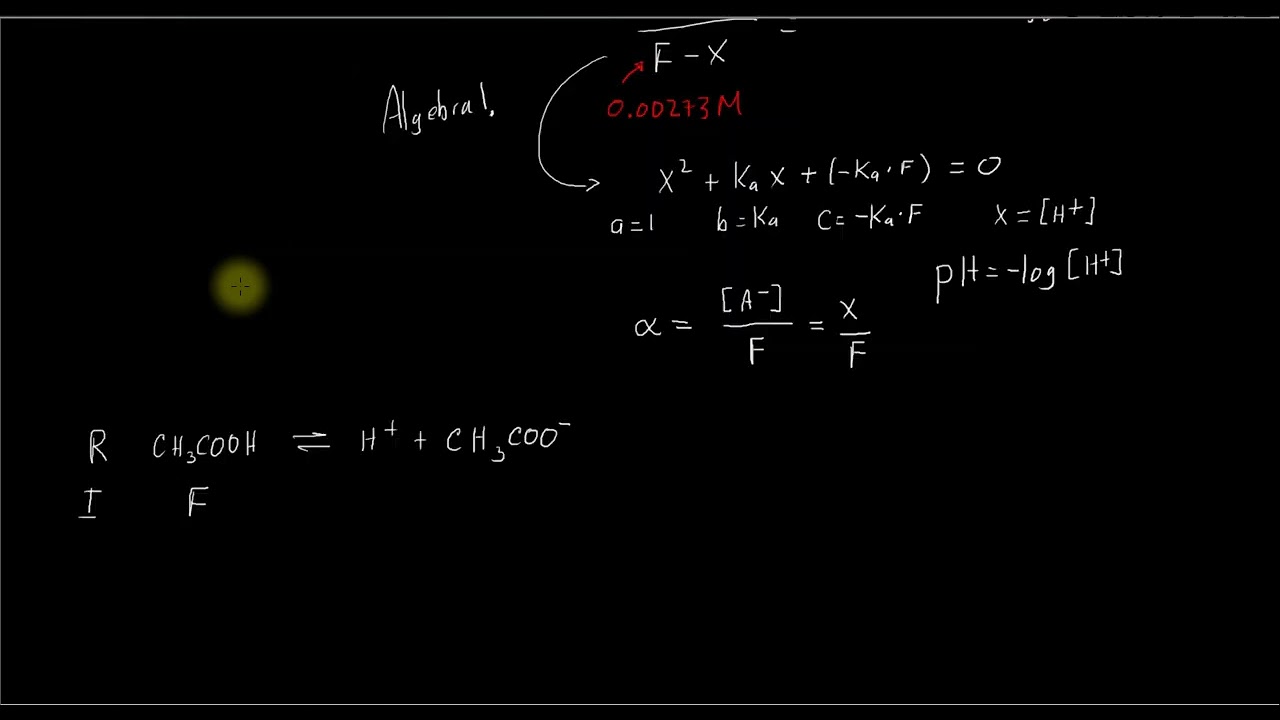 F - X
Algebra!.
0.00273M
X² + Ka X + (-Ka · F) = 0
a=1 b=Ka C=-Ka·F X=[H+]
pH=-log[H+]
α = [A⁻]/F = X/F
R CH₃COOH ⇌ H⁺ + CH₃COO⁻
I F